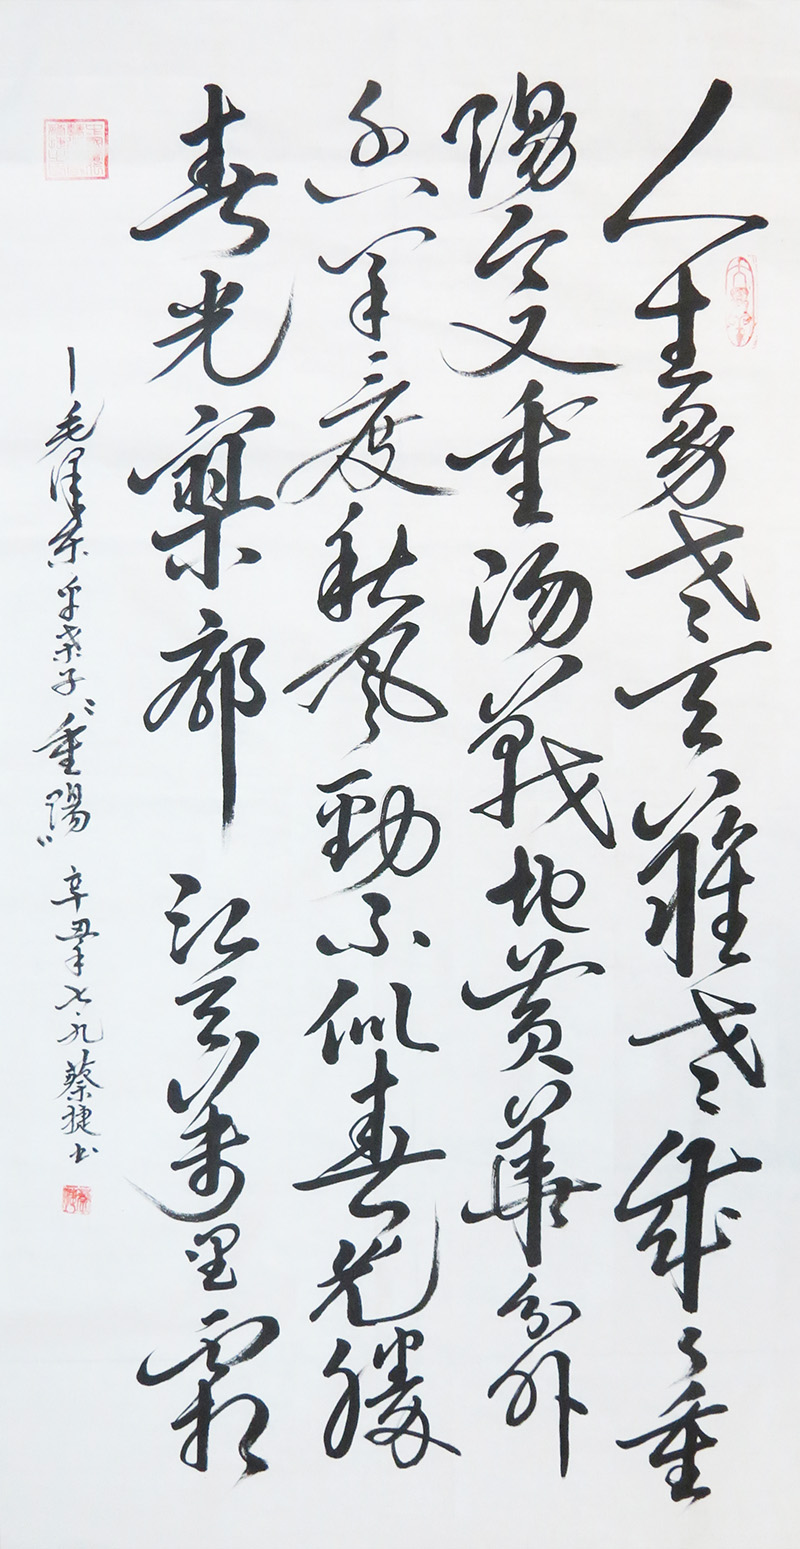 人生易老天難老歲々重
陽今又重陽戰地黃華分外
香一年一度秋風勁不似春光勝
春光寥廓江天萬里霜
—毛澤東采桑子“重陽”辛丑年七.九蔡捷书